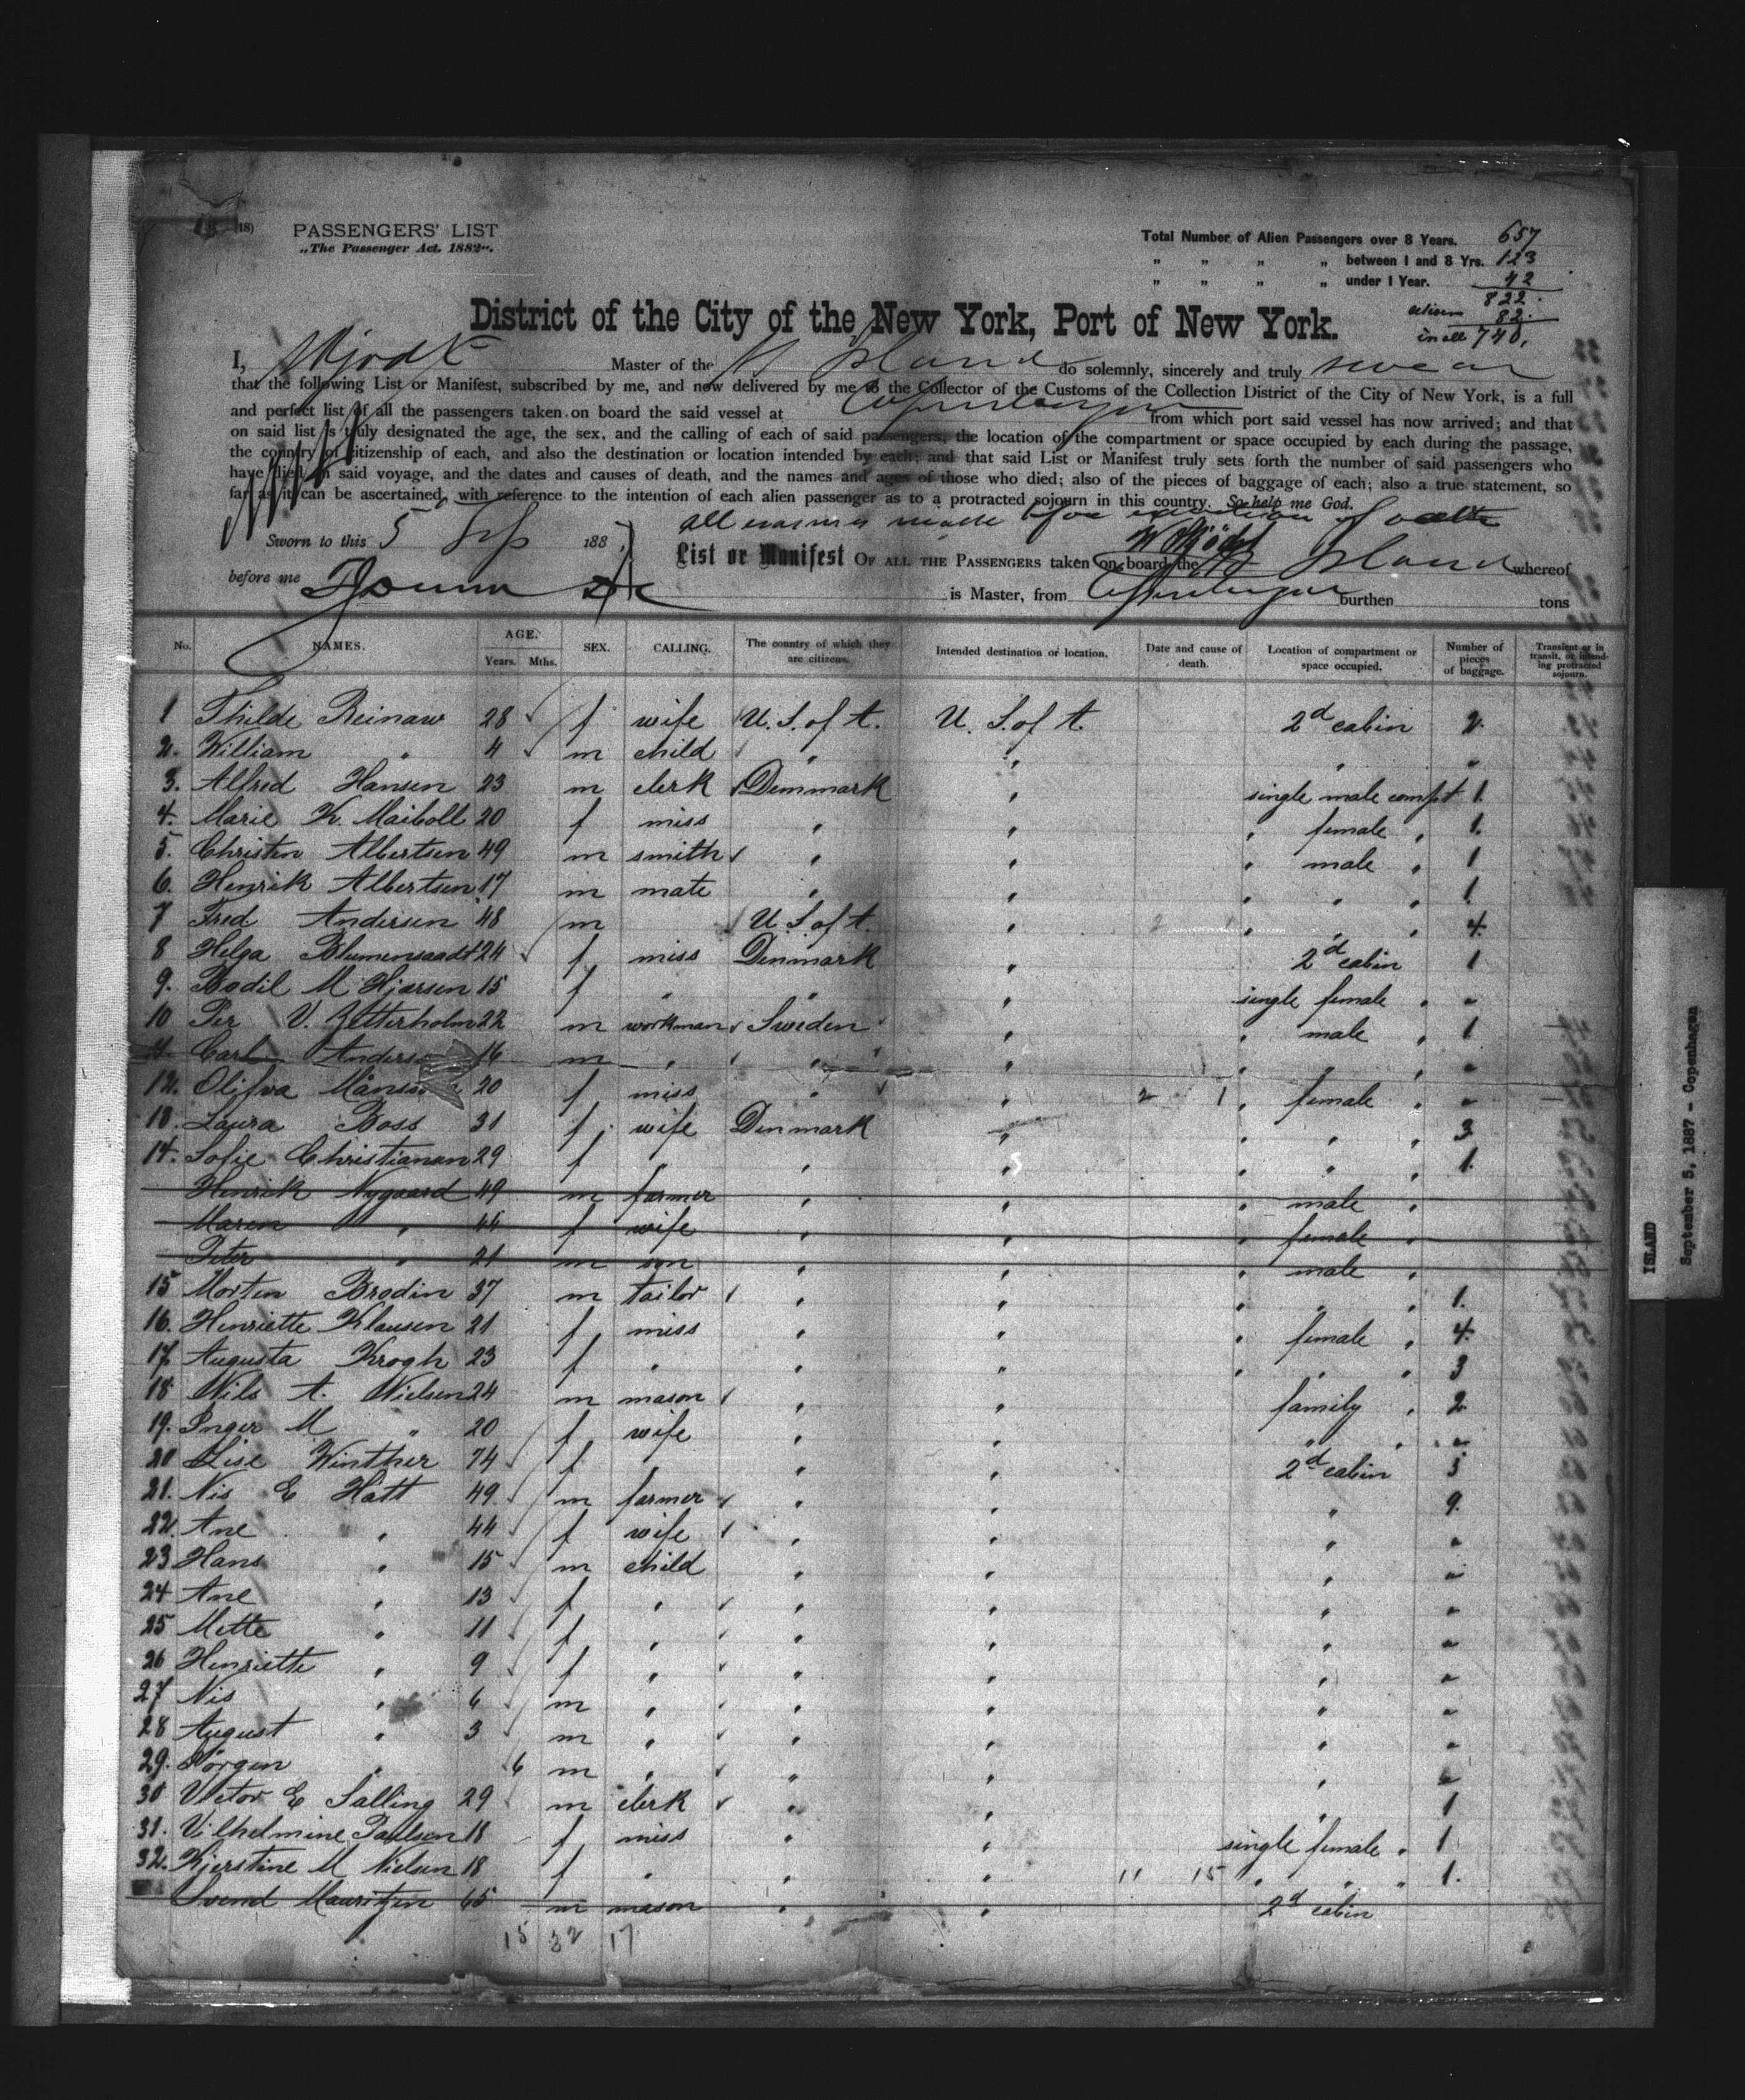 (18) PASSENGERS' LIST
„The Passenger Act, 1882".
Total Number of Alien Passengers over 8 Years. 657
" " " " between 1 and 8 Yrs. 123
" " " " under 1 Year. 42
822.
82.
in all 740,
District of the City of the New York, Port of New York.
I, Skjodt Master of the Island do solemnly, sincerely and truly swear
that the following List or Manifest, subscribed by me, and now delivered by me to the Collector of the Customs of the Collection District of the City of New York, is a full
and perfect list of all the passengers taken on board the said vessel at Copenhagen from which port said vessel has now arrived; and that
on said list is truly designated the age, the sex, and the calling of each of said passengers, the location of the compartment or space occupied by each during the passage,
the country of citizenship of each, and also the destination or location intended by each; and that said List or Manifest truly sets forth the number of said passengers who
have died on said voyage, and the dates and causes of death, and the names and ages of those who died; also of the pieces of baggage of each; also a true statement, so
far as it can be ascertained, with reference to the intention of each alien passenger as to a protracted sojourn in this country. So help me God.
All erasures made before execution of oath
Sworn to this 5 Sep 188
W Skjödt
List or Manifest OF ALL THE PASSENGERS taken on board the Island whereof
before me
is Master, from Copenhagen burthen tons
No. NAMES. AGE. Years. Mths. SEX. CALLING. The country of which they are citizens. Intended destination or location. Date and cause of death. Location of compartment or space occupied. Number of pieces of baggage. Transient or in transit, or intending protracted sojourn.
1 Thilde Reinaw 28 f wife U. S. of A. U. S. of A. 2d cabin 2.
2. William " 4 m child " " " "
3. Alfred Hansen 23 m clerk Denmark " single male compt 1.
4. Marie K. Maiboll 20 f miss " " " female " 1.
5. Christen Albertsen 49 m smith " " " male " 1
6. Henrik Albertsen 17 m mate " " " " " 1.
7 Fred Andersen 48 m U. S. of A. " " " " 4.
8 Helga Blumensaadt 24 f miss Denmark " 2d cabin 1
9. Bodil M Hjarsen 15 f " " " single female " "
10 Per V. Zetterholm 22 m workman Sweden " " male " 1
Carl Anders 16 m " " " " " " "
12. Olifva Månss 20 f miss " " 2 1 " female " "
13. Laura Boss 31 f wife Denmark " " " " 3
14. Sofie Christiansen 29 f " " " " " " 1.
Henrik Nygaard 49 m farmer " " " male "
Maren " 44 f wife " " " female "
Peter " 21 m son " " " male "
15 Morten Brodin 37 m tailor " " " " " 1.
16. Henriette Klausen 21 f miss " " " female " 4.
17. Augusta Krogh 23 f " " " " " " 3
18 Nils A. Nielsen 24 m mason " " family " 2.
19. Inger M " 20 f wife " " " " "
20 Lise Winther 74 f " " " 2d cabin 5
21. Nis E Hatt 49 m farmer " " " 9.
22. Ane " 44 f wife " " " "
23 Hans " 15 m child " " " "
24 Ane " 13 f " " " " "
25 Mette " 11 f " " " " "
26 Henriette " 9 f " " " " "
27 Nis " 6 m " " " " "
28 August " 3 m " " " " "
29. Jörgen " 6 m " " " " "
30 Victor E Salling 29 m clerk " " " 1
31. Vilhelmine Paulsen 18 f miss " " single female " 1
32. Kjerstine M Nielsen 18 f " " " 11 15 " " " 1.
Svend Mauritzen 65 m mason " " 2d cabin
15 32 17
ISLAND
September 5, 1887 - Copenhagen